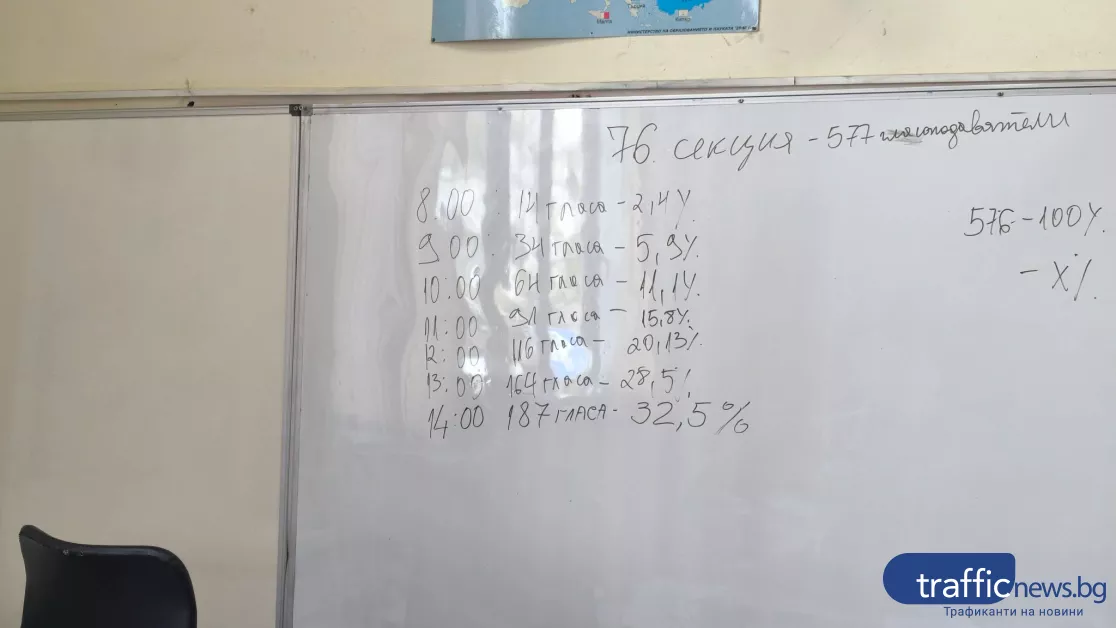 МИНИСТЕРСТВО НА ОБРАЗОВАНИЕТО И НАУКАТА
76. секция - 577 гласоподаватели
8.00 : 14 гласа - 2,4%
9.00 : 34 гласа - 5,9%.
10:00 64 гласа - 11,1%.
11:00 91 гласа - 15,8%.
12:00 116 гласа - 20,13%.
13:00 164 гласа - 28,5%
14:00 187 ГЛАСА - 32,5%
576 - 100%.
- X%.
trafficnews.bg
Трафиканти на новини